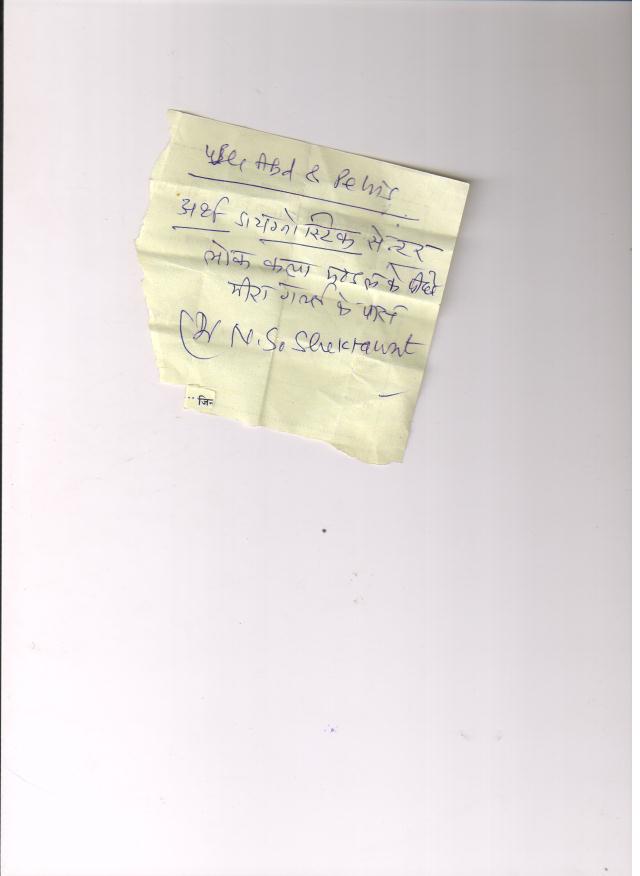 Abd & Pelvis
अर्थ डायग्नोस्टिक सेन्टर
लोक कला मण्डल के पीछे
मीरा गर्ल्स के पास
N.S. Shektawat
... जिन